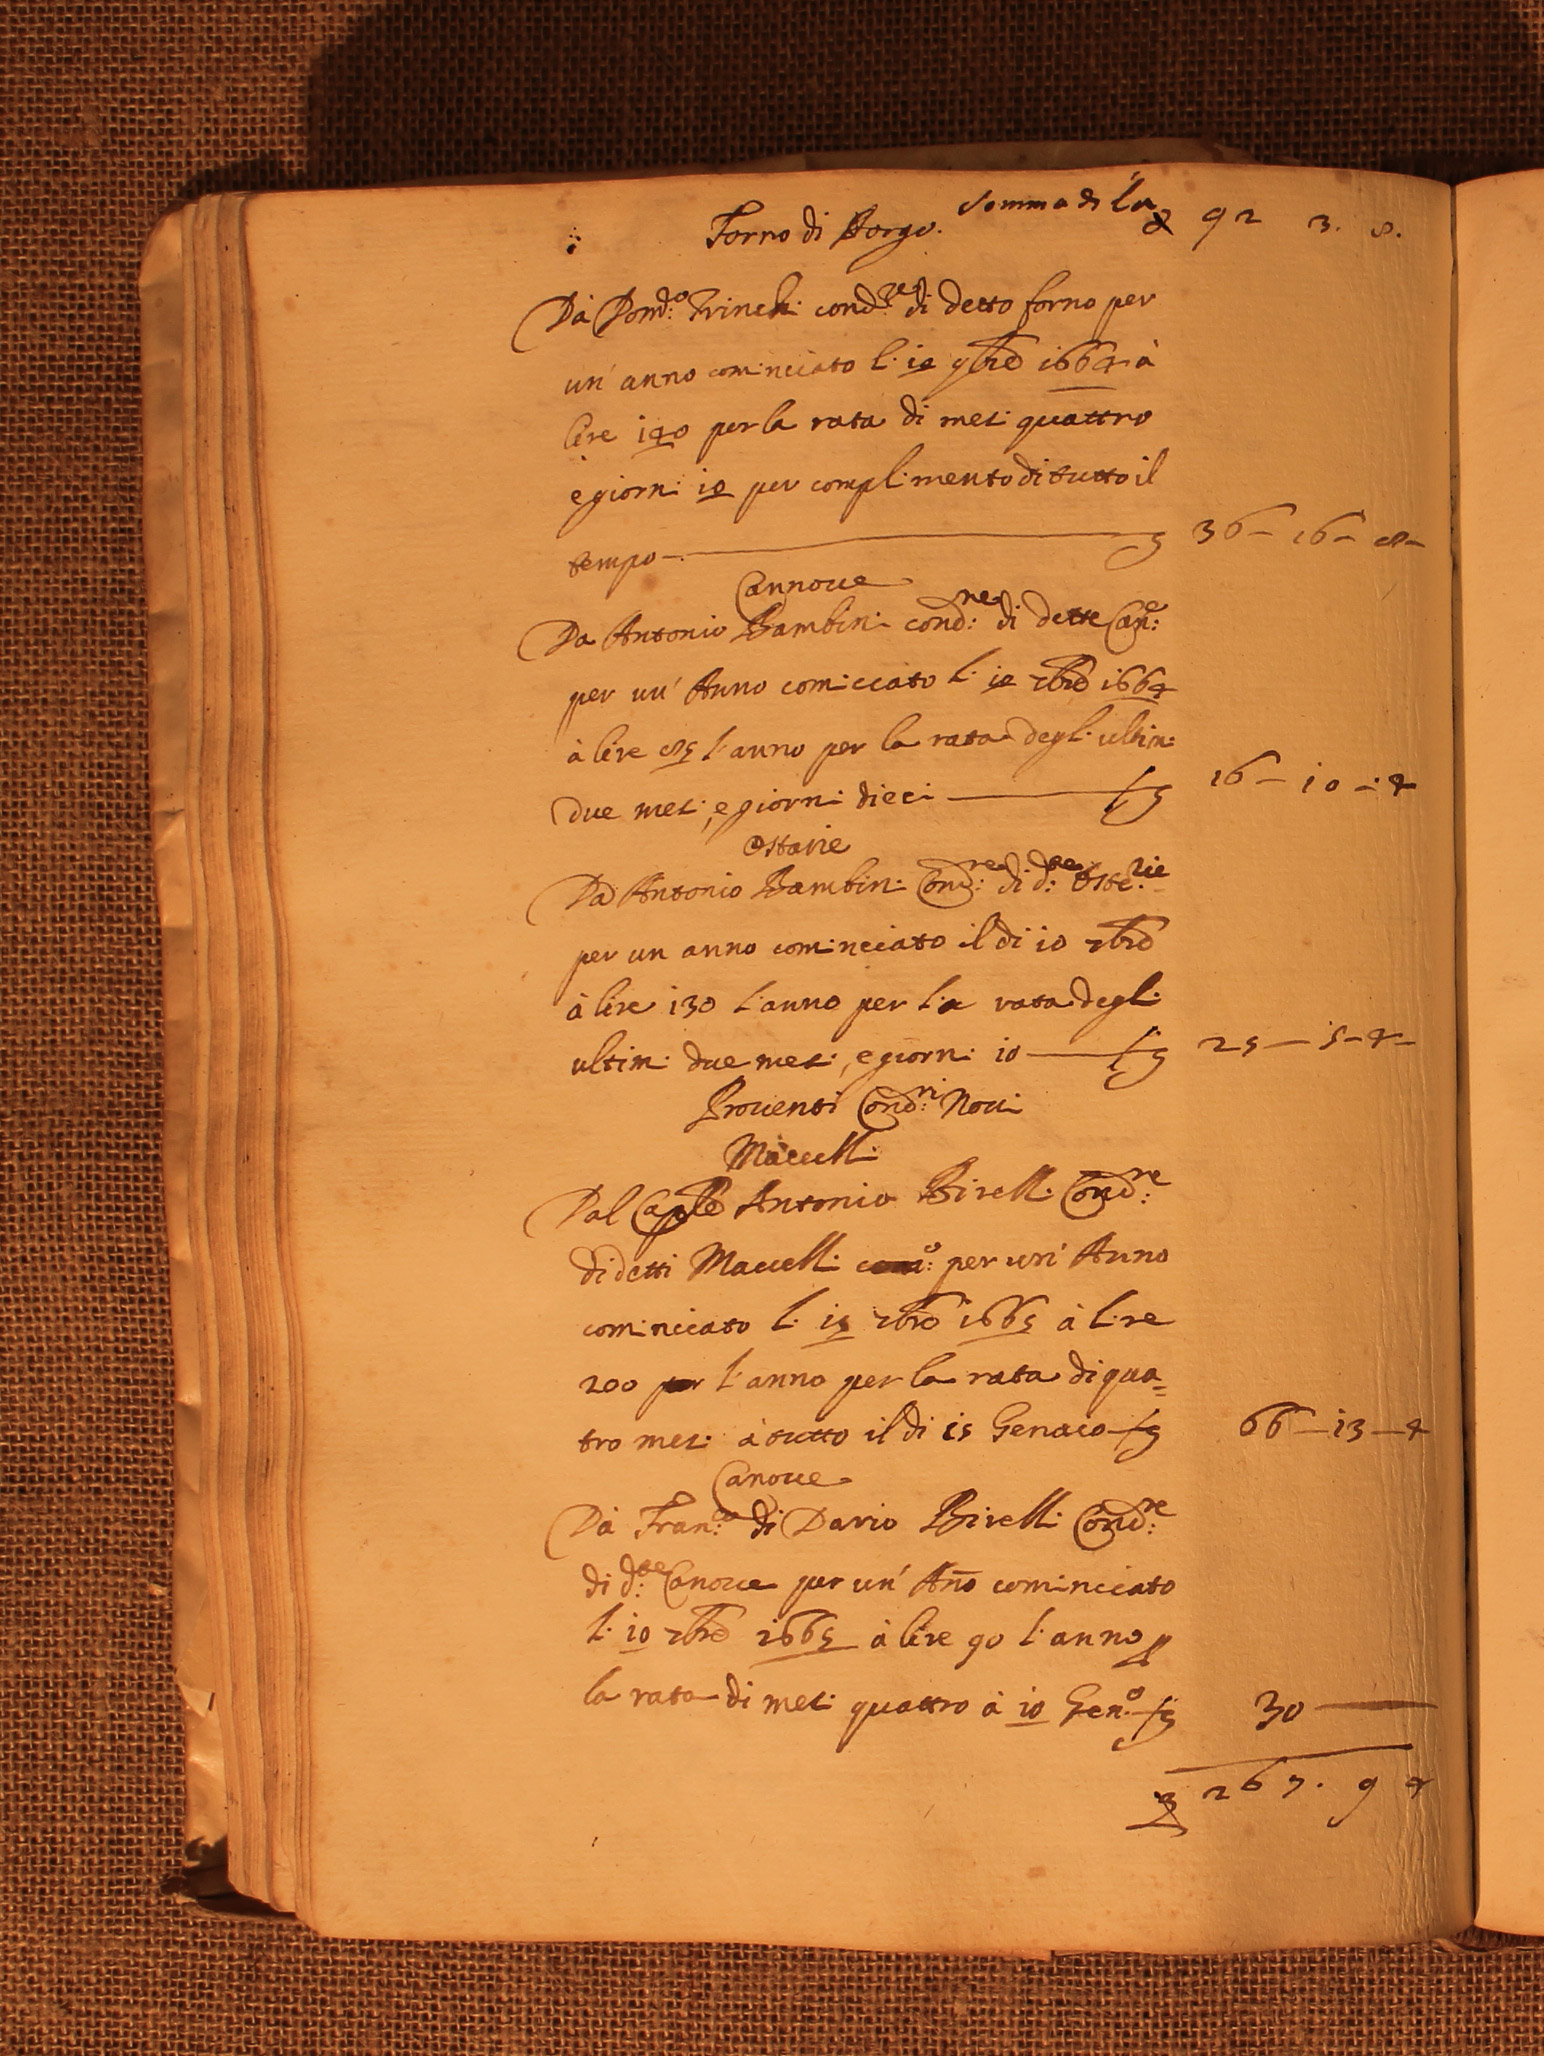 Somma di là £ 92 3. 8.
Forno di Borgo.
Dà Dom:co Trinchi cond:re di detto forno per
un' anno cominciato li 10 9bre 1664 à
lire 140 per la rata di mesi quattro
e giorni 10 per complimento di tutto il
tempo — £ 36 – 16 – 8 –
Cannoue
Da Antonio Bambini cond:re di dette Can:e
per un' Anno comicciato li 10 7bre 1664
à lire 85 l'anno per la rata degli ultimi
due mesi, e giorni dieci — £ 16 – 10 – 4
Ostarie
Da Antonio Bambini Cond:re di d:te Oste:rie
per un anno cominciato il di 10 7bre
à lire 130 l'anno per la rata degli
ultimi due mesi, e giorni 10 — £ 25 – 5 – 4 –
Prouenti Cond:ri Noui
Macelli
Dal Caple Antonio Birelli Cond:re
di detti Macelli per un' Anno
cominciato li 15 7bre 1665 à lire
200 l'anno per la rata di qua=
tro mesi à tutto il di 15 Genaio £ 66 – 13 – 4
Canoue
Dà Fran:co di Dario Birelli Cond:re
di d:te Canoue per un' Año cominciato
li 10 7bre 1665 à lire 90 l'anno p
la rata di mesi quattro à 10 Gen:o £ 30 —
£ 267. 9 4